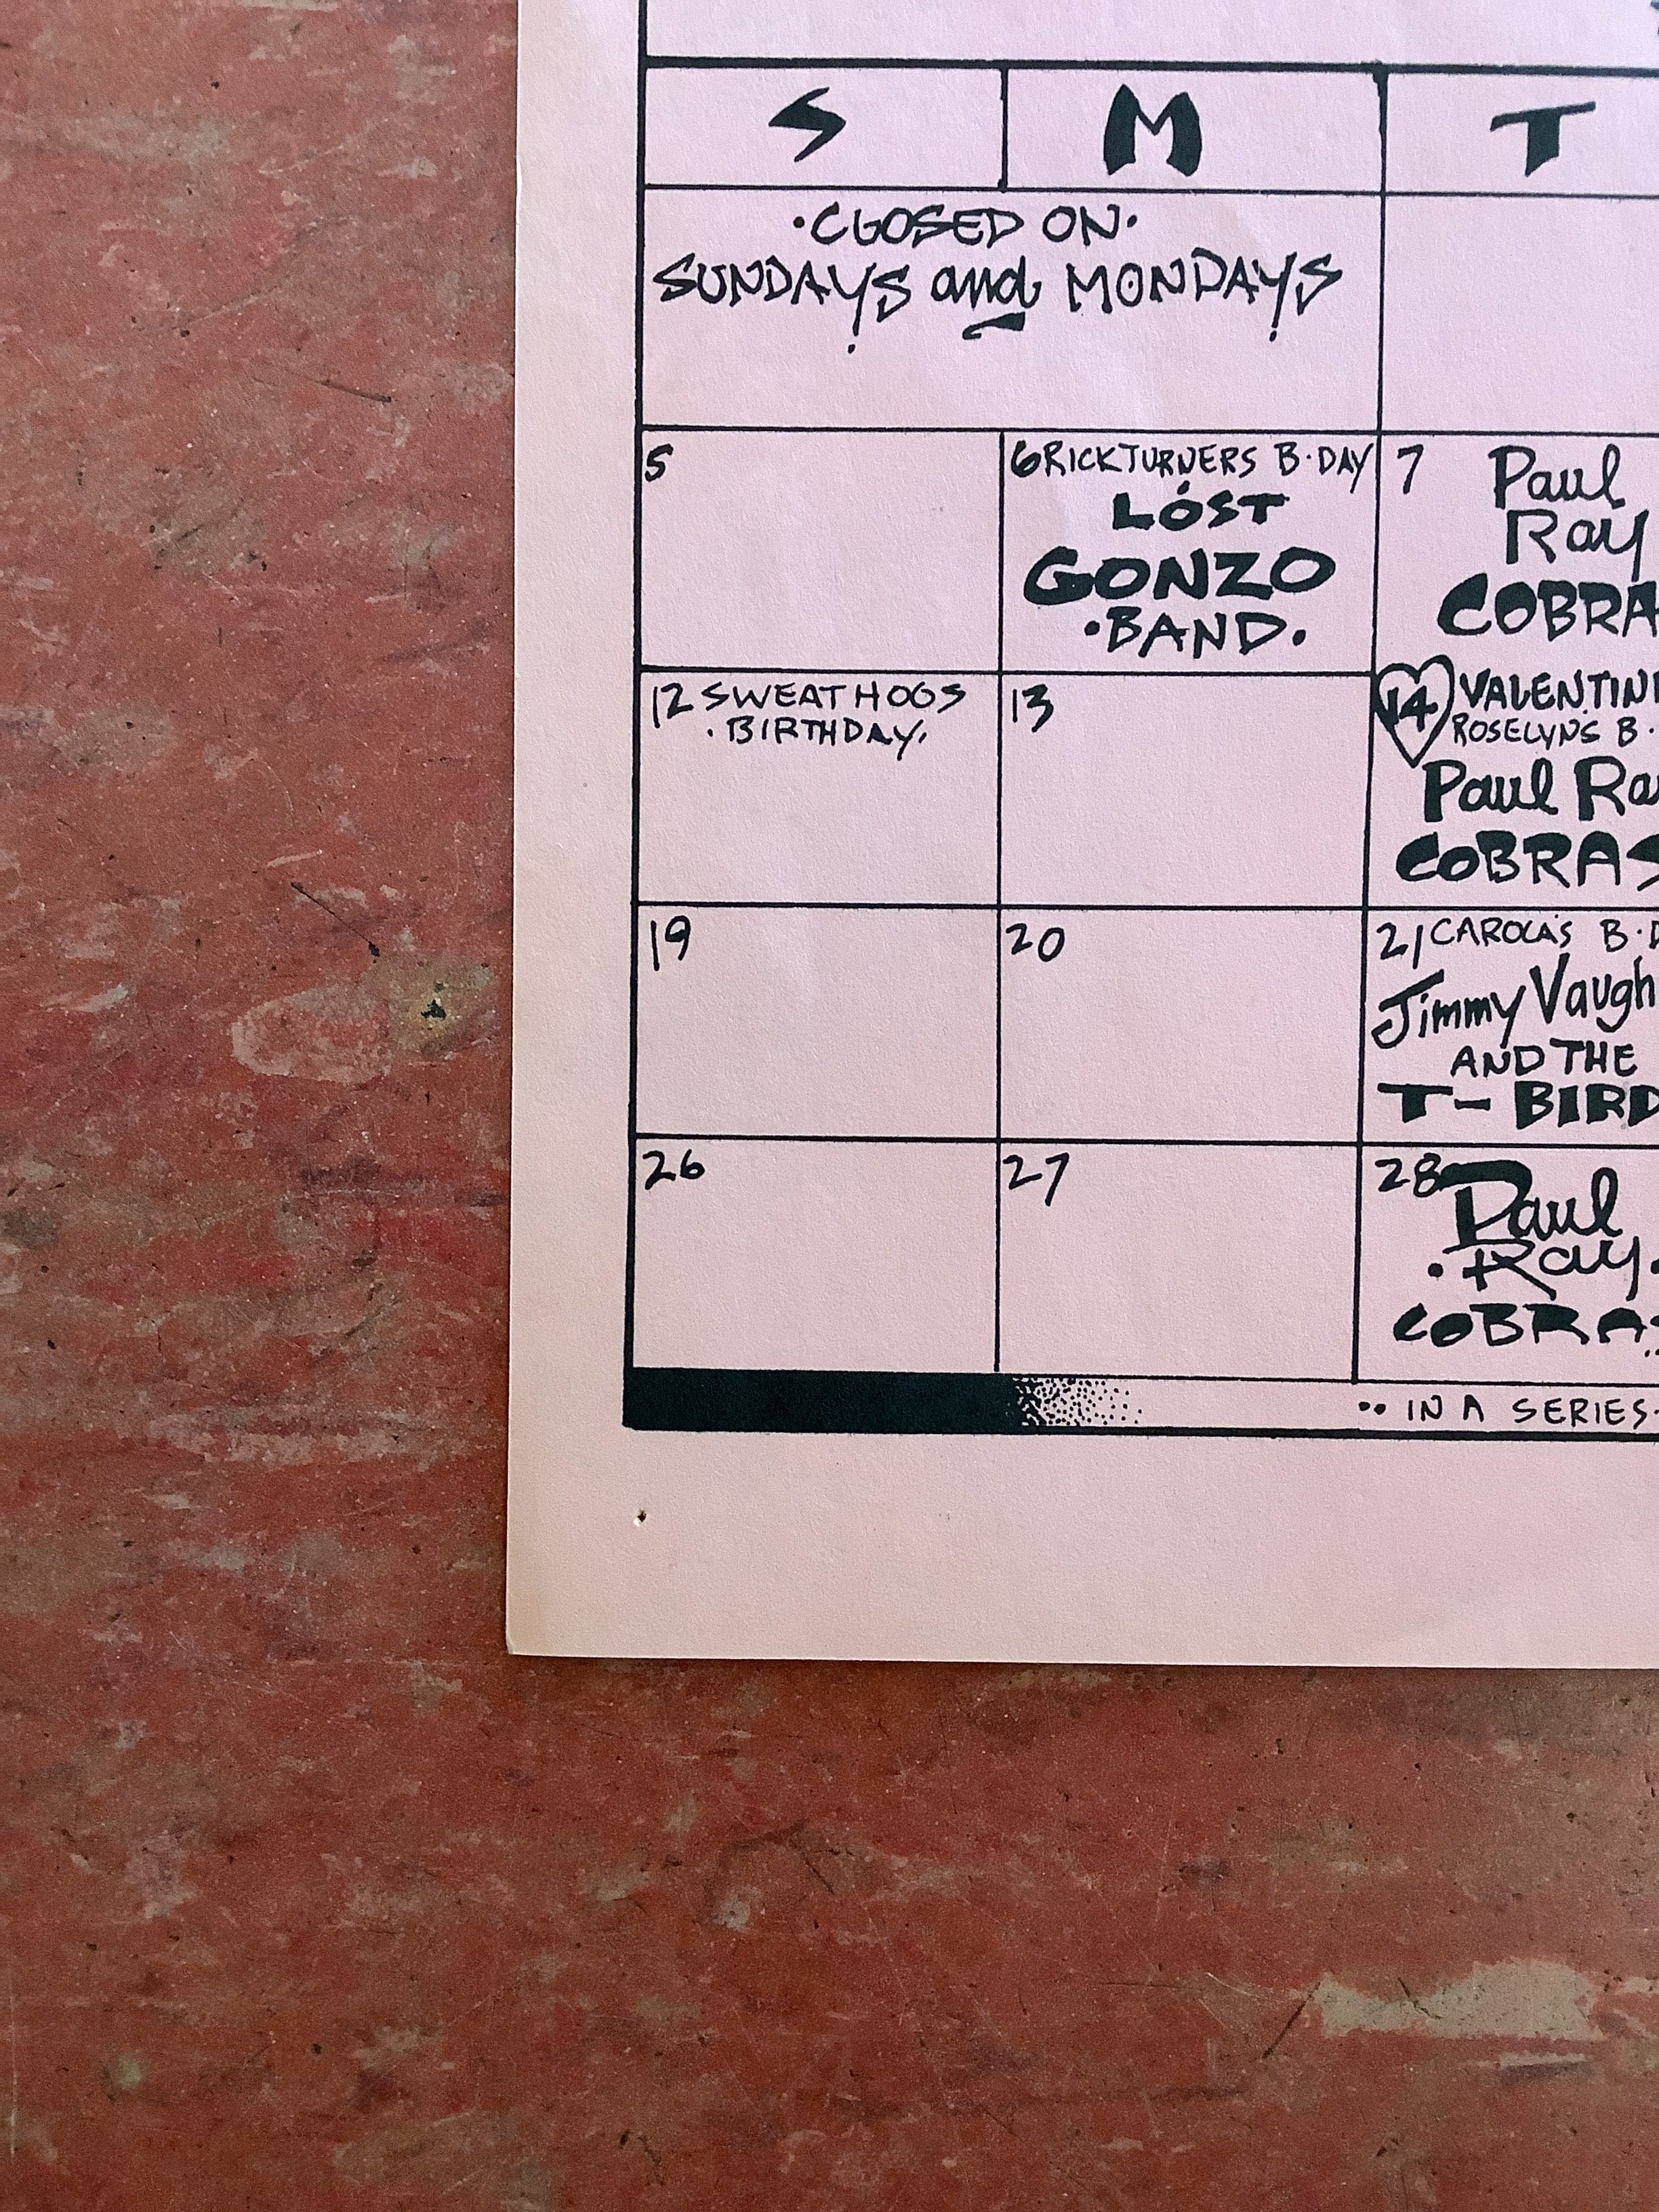 S M T
·CLOSED ON·
SUNDAYS and MONDAYS
5
6 RICK TURNERS B·DAY
LOST
GONZO
·BAND·
7 Paul
Ray
COBRA
12 SWEAT HOGS
·BIRTHDAY·
13
14 VALENTIN
ROSELYN'S B·
Paul Ra
COBRAS
19
20
21 CAROLA'S B·D
Jimmy Vaugh
AND THE
T-BIRD
26
27
28 Paul
·Ray·
COBRAS
·· IN A SERIES·